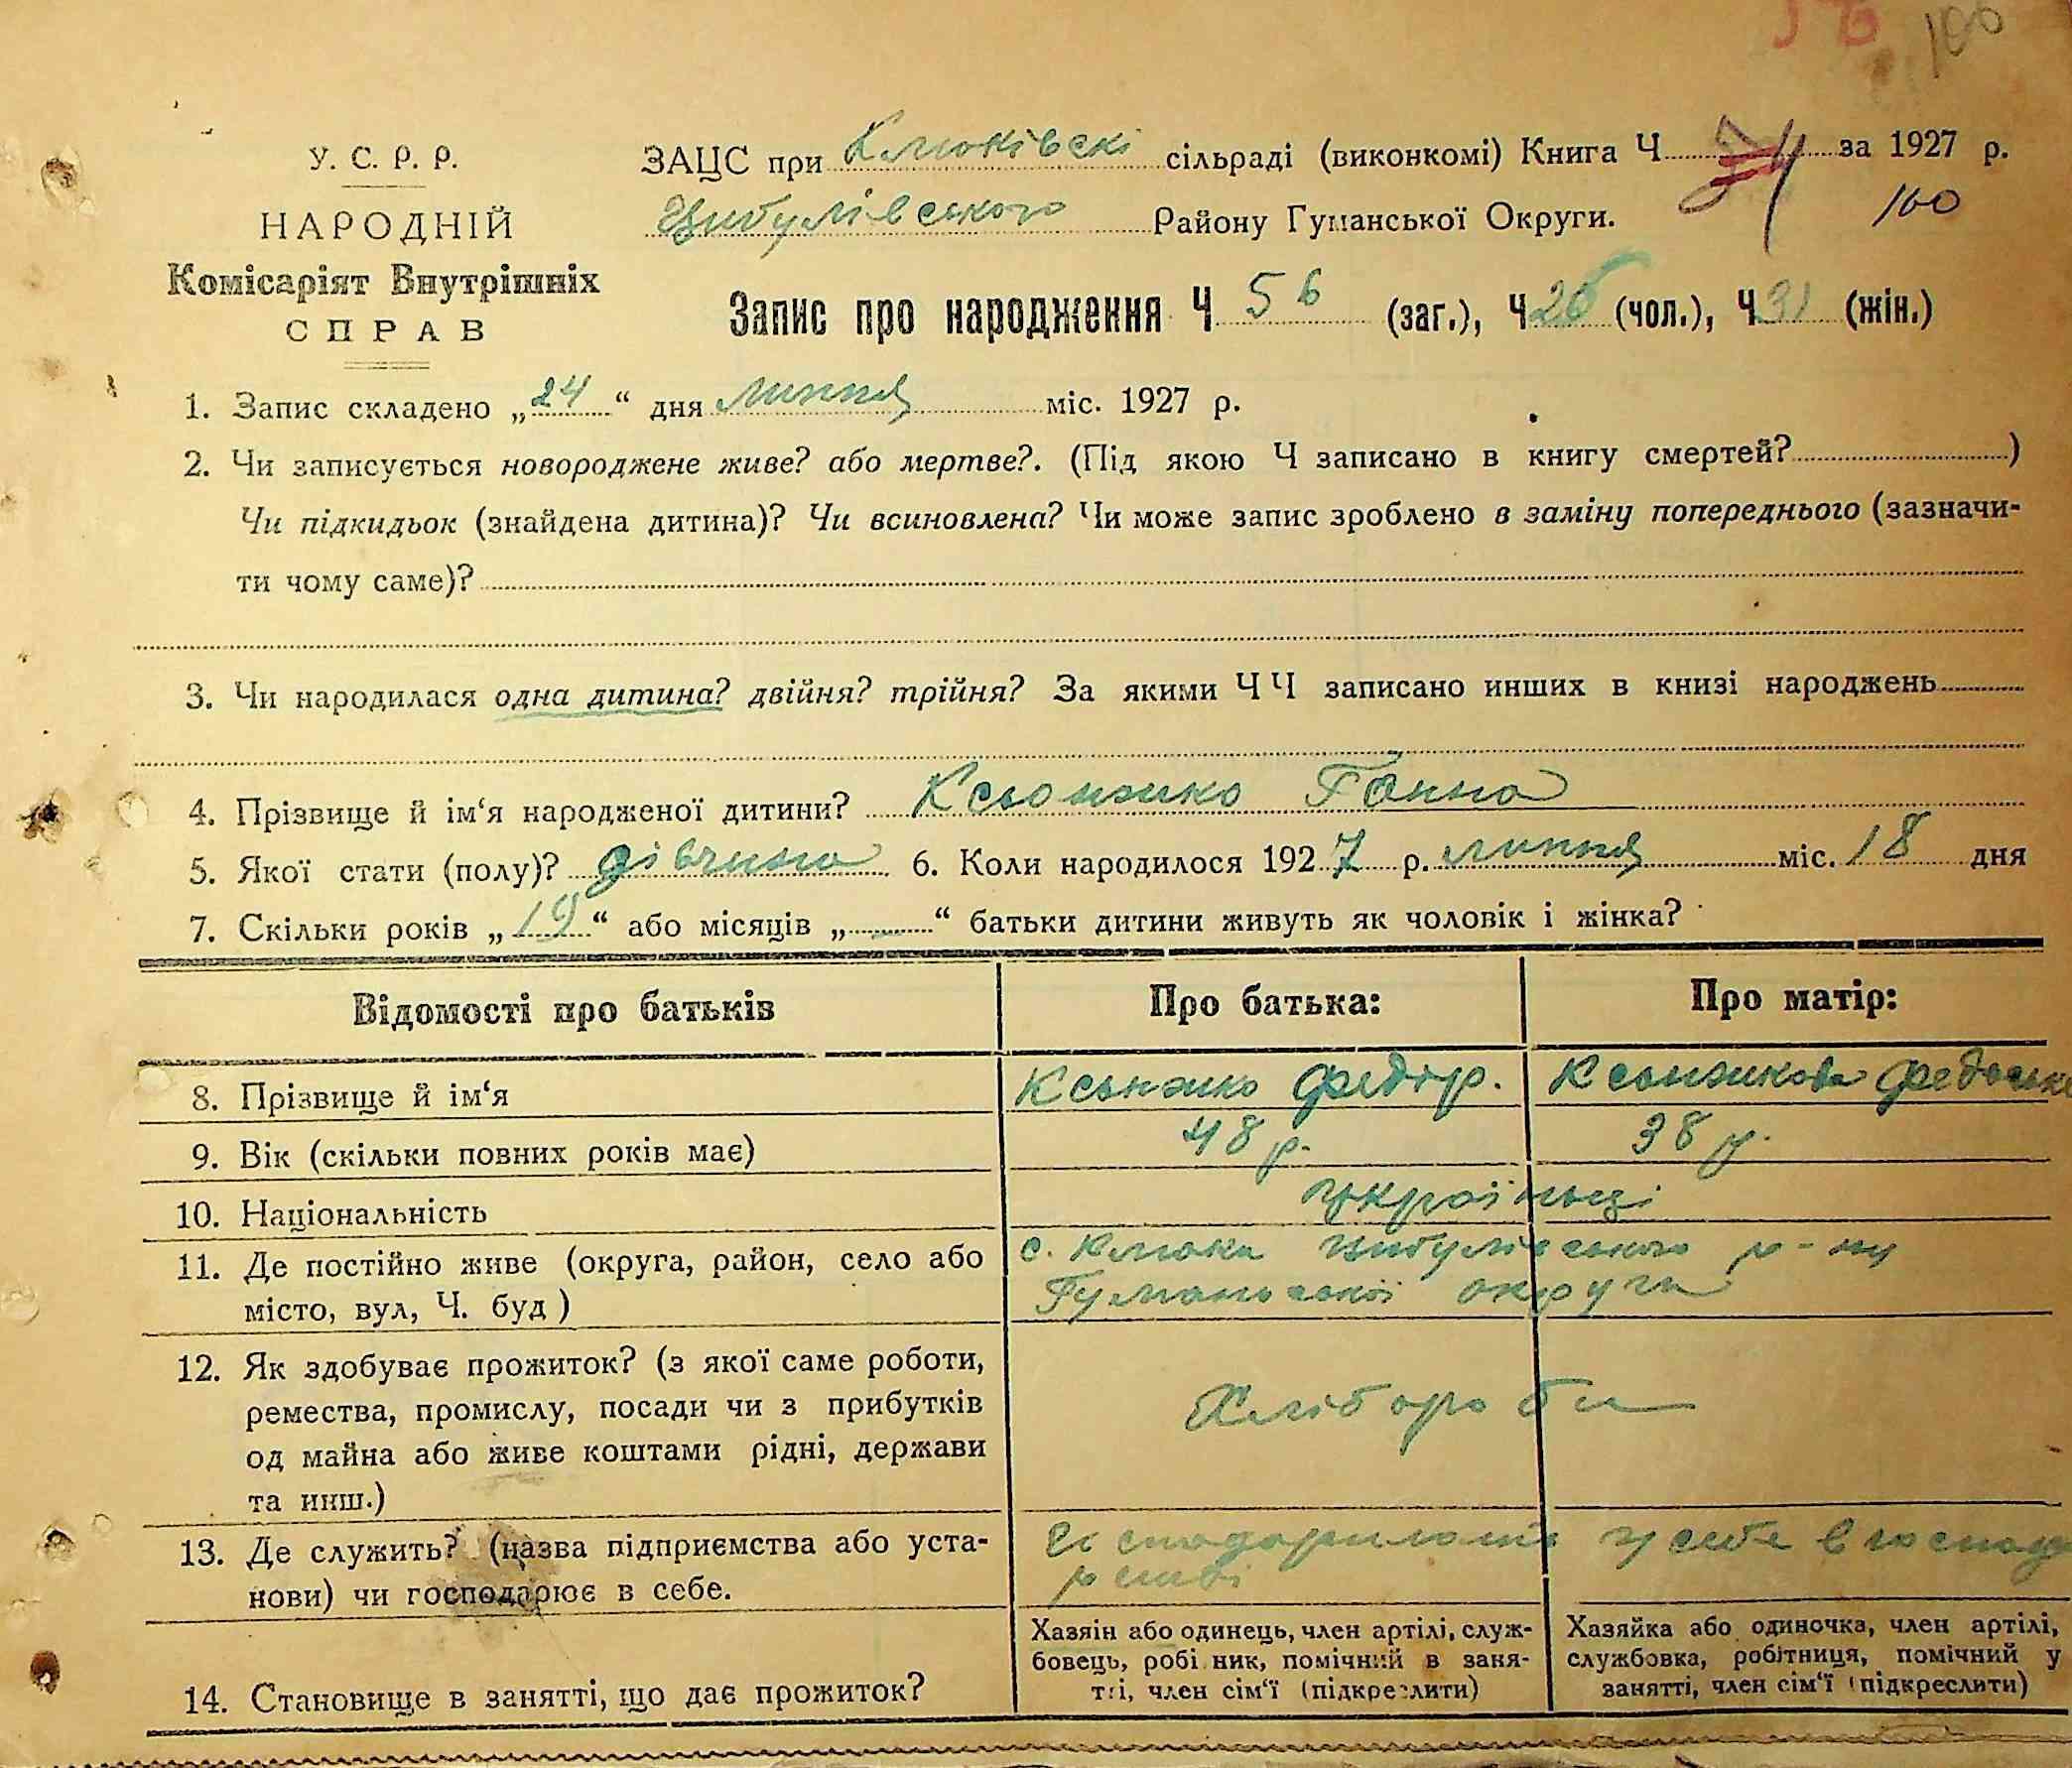 106
У. С. Р. Р.
НАРОДНІЙ
Комісаріят Внутрішніх
СПРАВ
ЗАЦС при Клюківскі сільраді (виконкомі) Книга Ч за 1927 р.
Цибулівського Району Гуманської Округи. 100
Запис про народження Ч 56 (заг.), Ч 26 (чол.), Ч 31 (жін.)
1. Запис складено „24“ дня липня міс. 1927 р.
2. Чи записується новороджене живе? або мертве?. (Під якою Ч записано в книгу смертей? )
Чи підкидьок (знайдена дитина)? Чи всиновлена? Чи може запис зроблено в заміну попереднього (зазначи-
ти чому саме)?
3. Чи народилася одна дитина? двійня? трійня? За якими ЧЧ записано инших в книзі народжень
4. Прізвище й ім‘я народженої дитини? Ксьонзико Ганна
5. Якої стати (полу)? дівчина 6. Коли народилося 1927 р. липня міс. 18 дня
7. Скільки років „19“ або місяців „ “ батьки дитини живуть як чоловік і жінка?
Відомості про батьків Про батька: Про матір:
8. Прізвище й ім‘я Ксьнзико Федір. Ксьонзикова Федоська
9. Вік (скільки повних років має) 48 р. 38 р.
10. Національність українці
11. Де постійно живе (округа, район, село або с. Клюки Цибулівського р-ну
місто, вул, Ч. буд ) Гуманської округи
12. Як здобуває прожиток? (з якої саме роботи, Хлібороби
ремества, промислу, посади чи з прибутків
од майна або живе коштами рідні, держави
та инш.)
13. Де служить? (назва підприємства або уста- у себе в господа
нови) чи господарює в себе. рстві
Хазяін або одинець, член артілі, служ- Хазяйка або одиночка, член артілі,
бовець, робі ник, помічний в заня- службовка, робітниця, помічний у
14. Становище в занятті, що дає прожиток? тті, член сім‘ї (підкреслити) занятті, член сім‘ї (підкреслити)